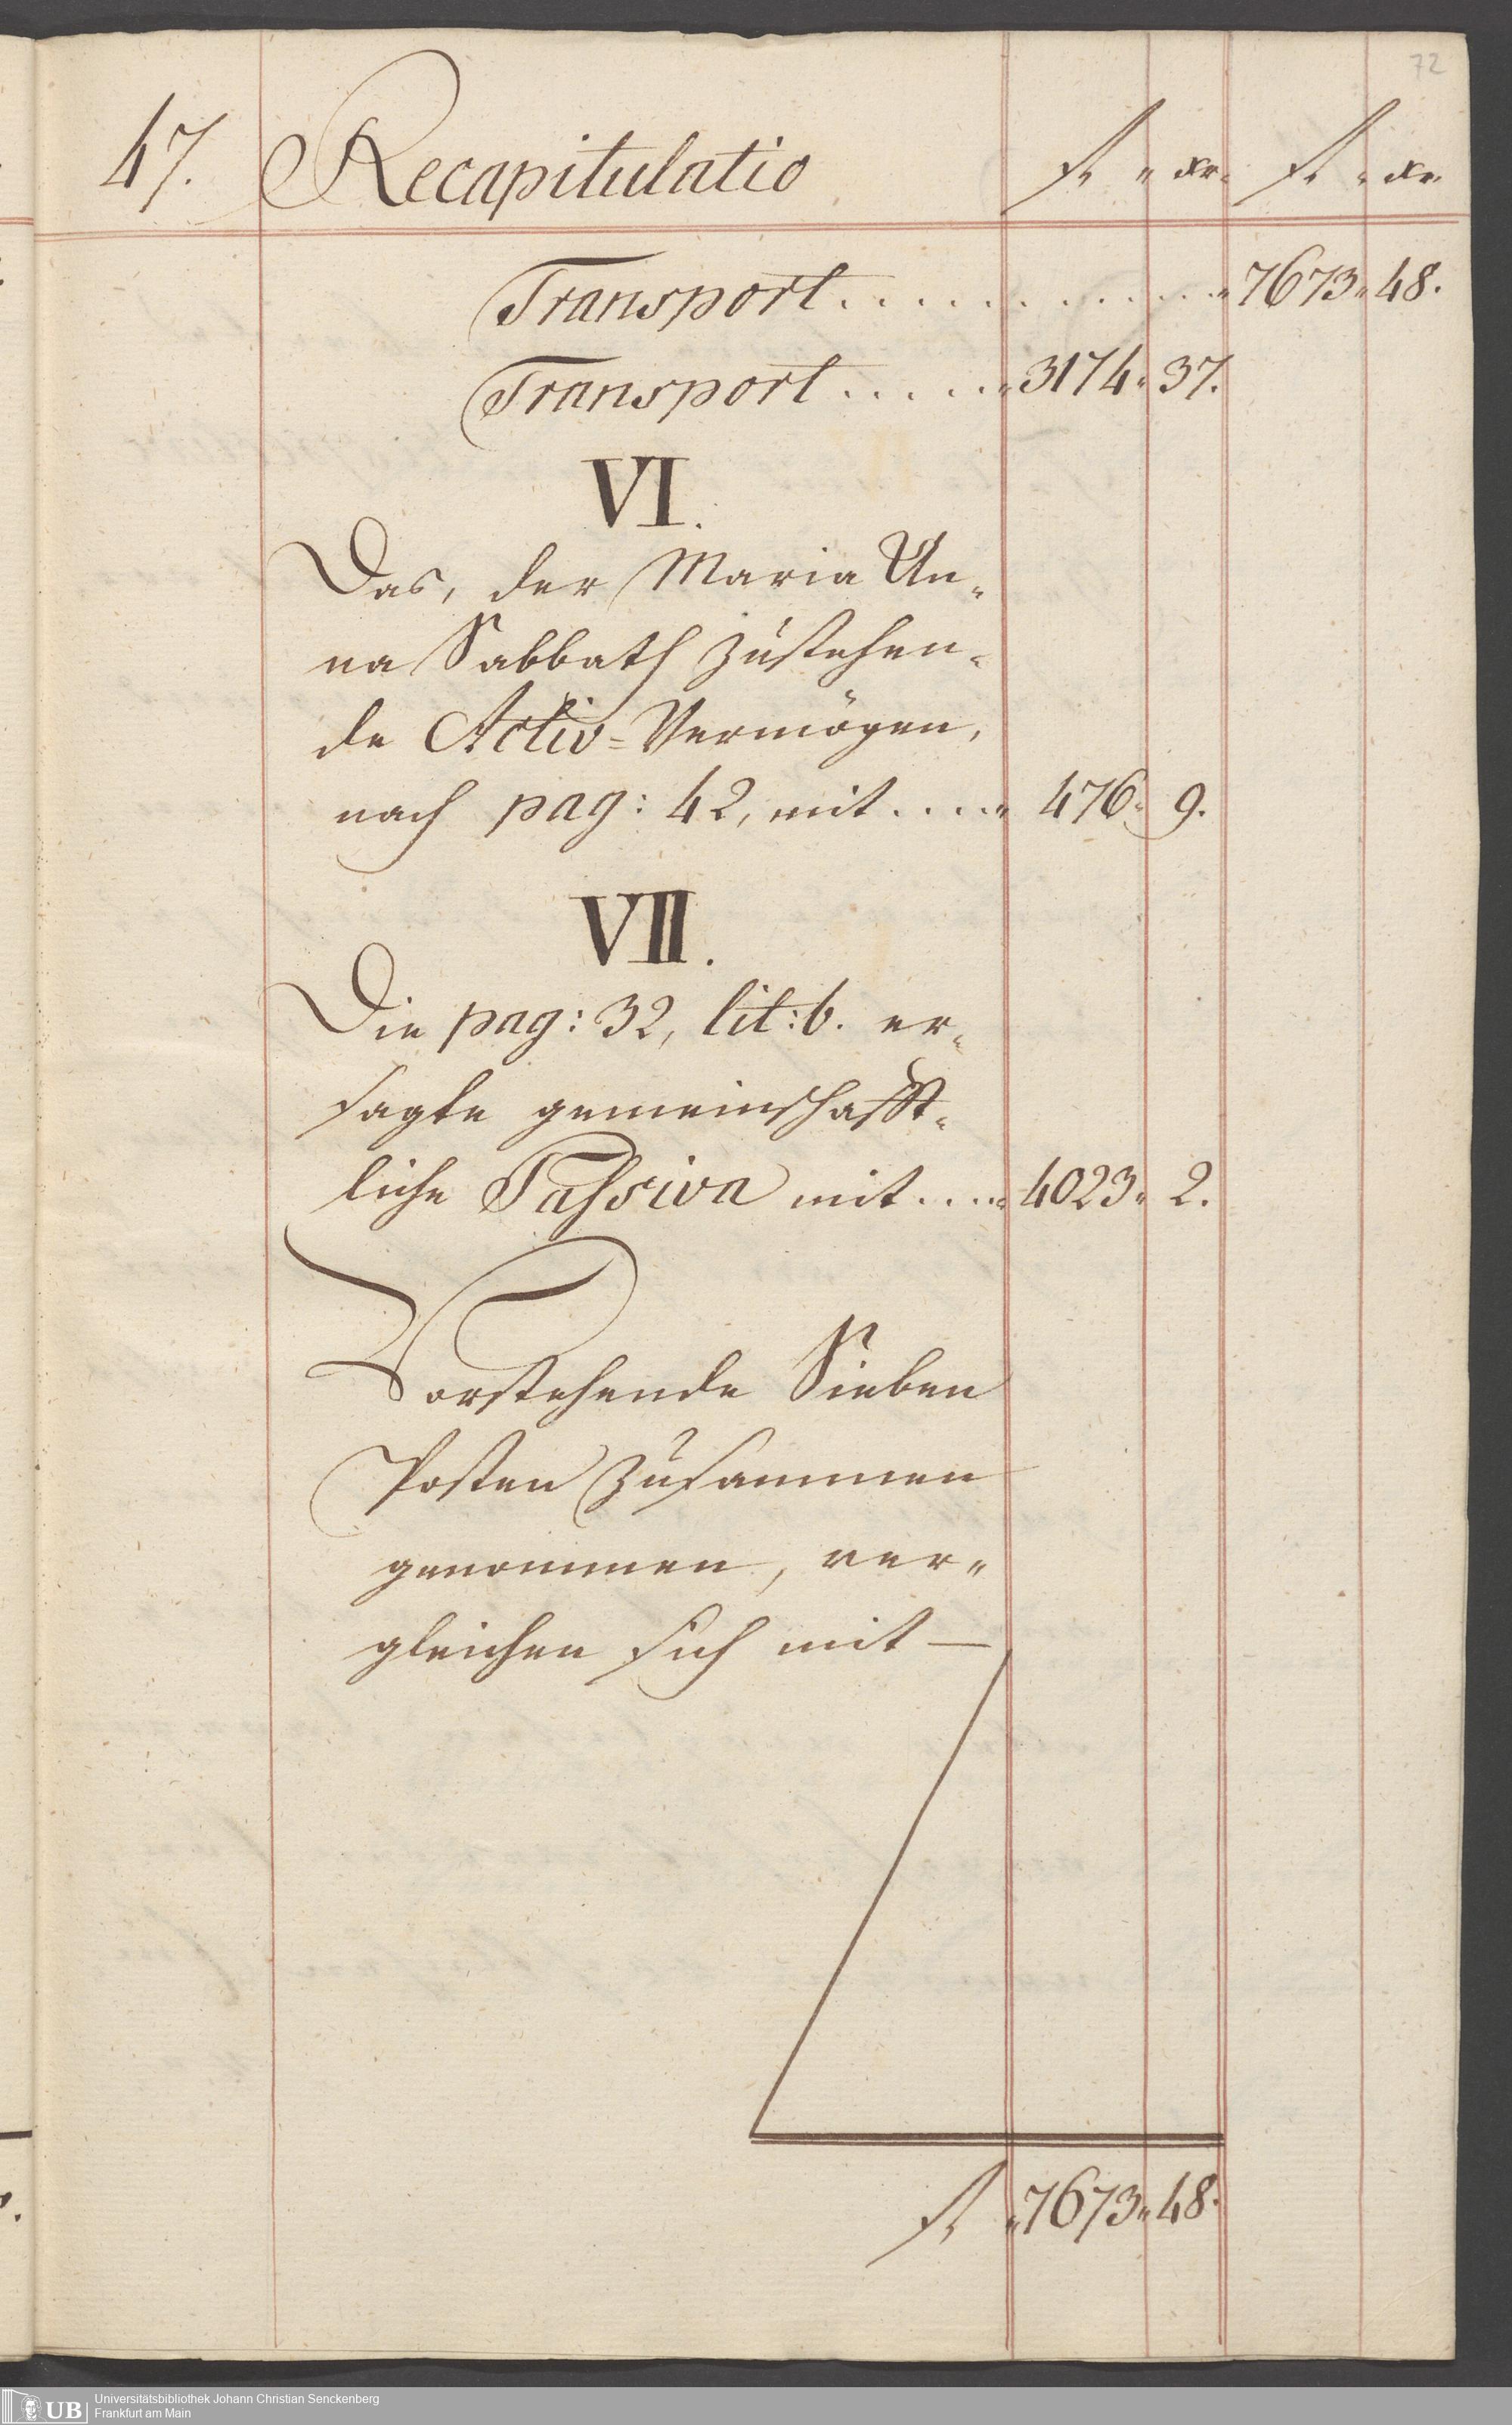 72
47. Recapitulatio f " xr. f " xr.
Transport . . . . . . . . . . . . " 7673 " 48.
Transport . . . . . " 3174 " 37.
VI.
Das, der Maria An-
na Sabbath zustehen-
de Activ=Vermögen,
nach pag: 42, mit . . . . " 476 " 9.
VII.
Die pag: 32, lit: b. er-
sagte gemeinschafft-
liche Passiva mit . . . . " 4023 " 2.
Vorstehende Sieben
Posten zusammen
genommen, ver-
gleichen sich mit —
f " 7673 " 48.
UB Universitätsbibliothek Johann Christian Senckenberg
Frankfurt am Main